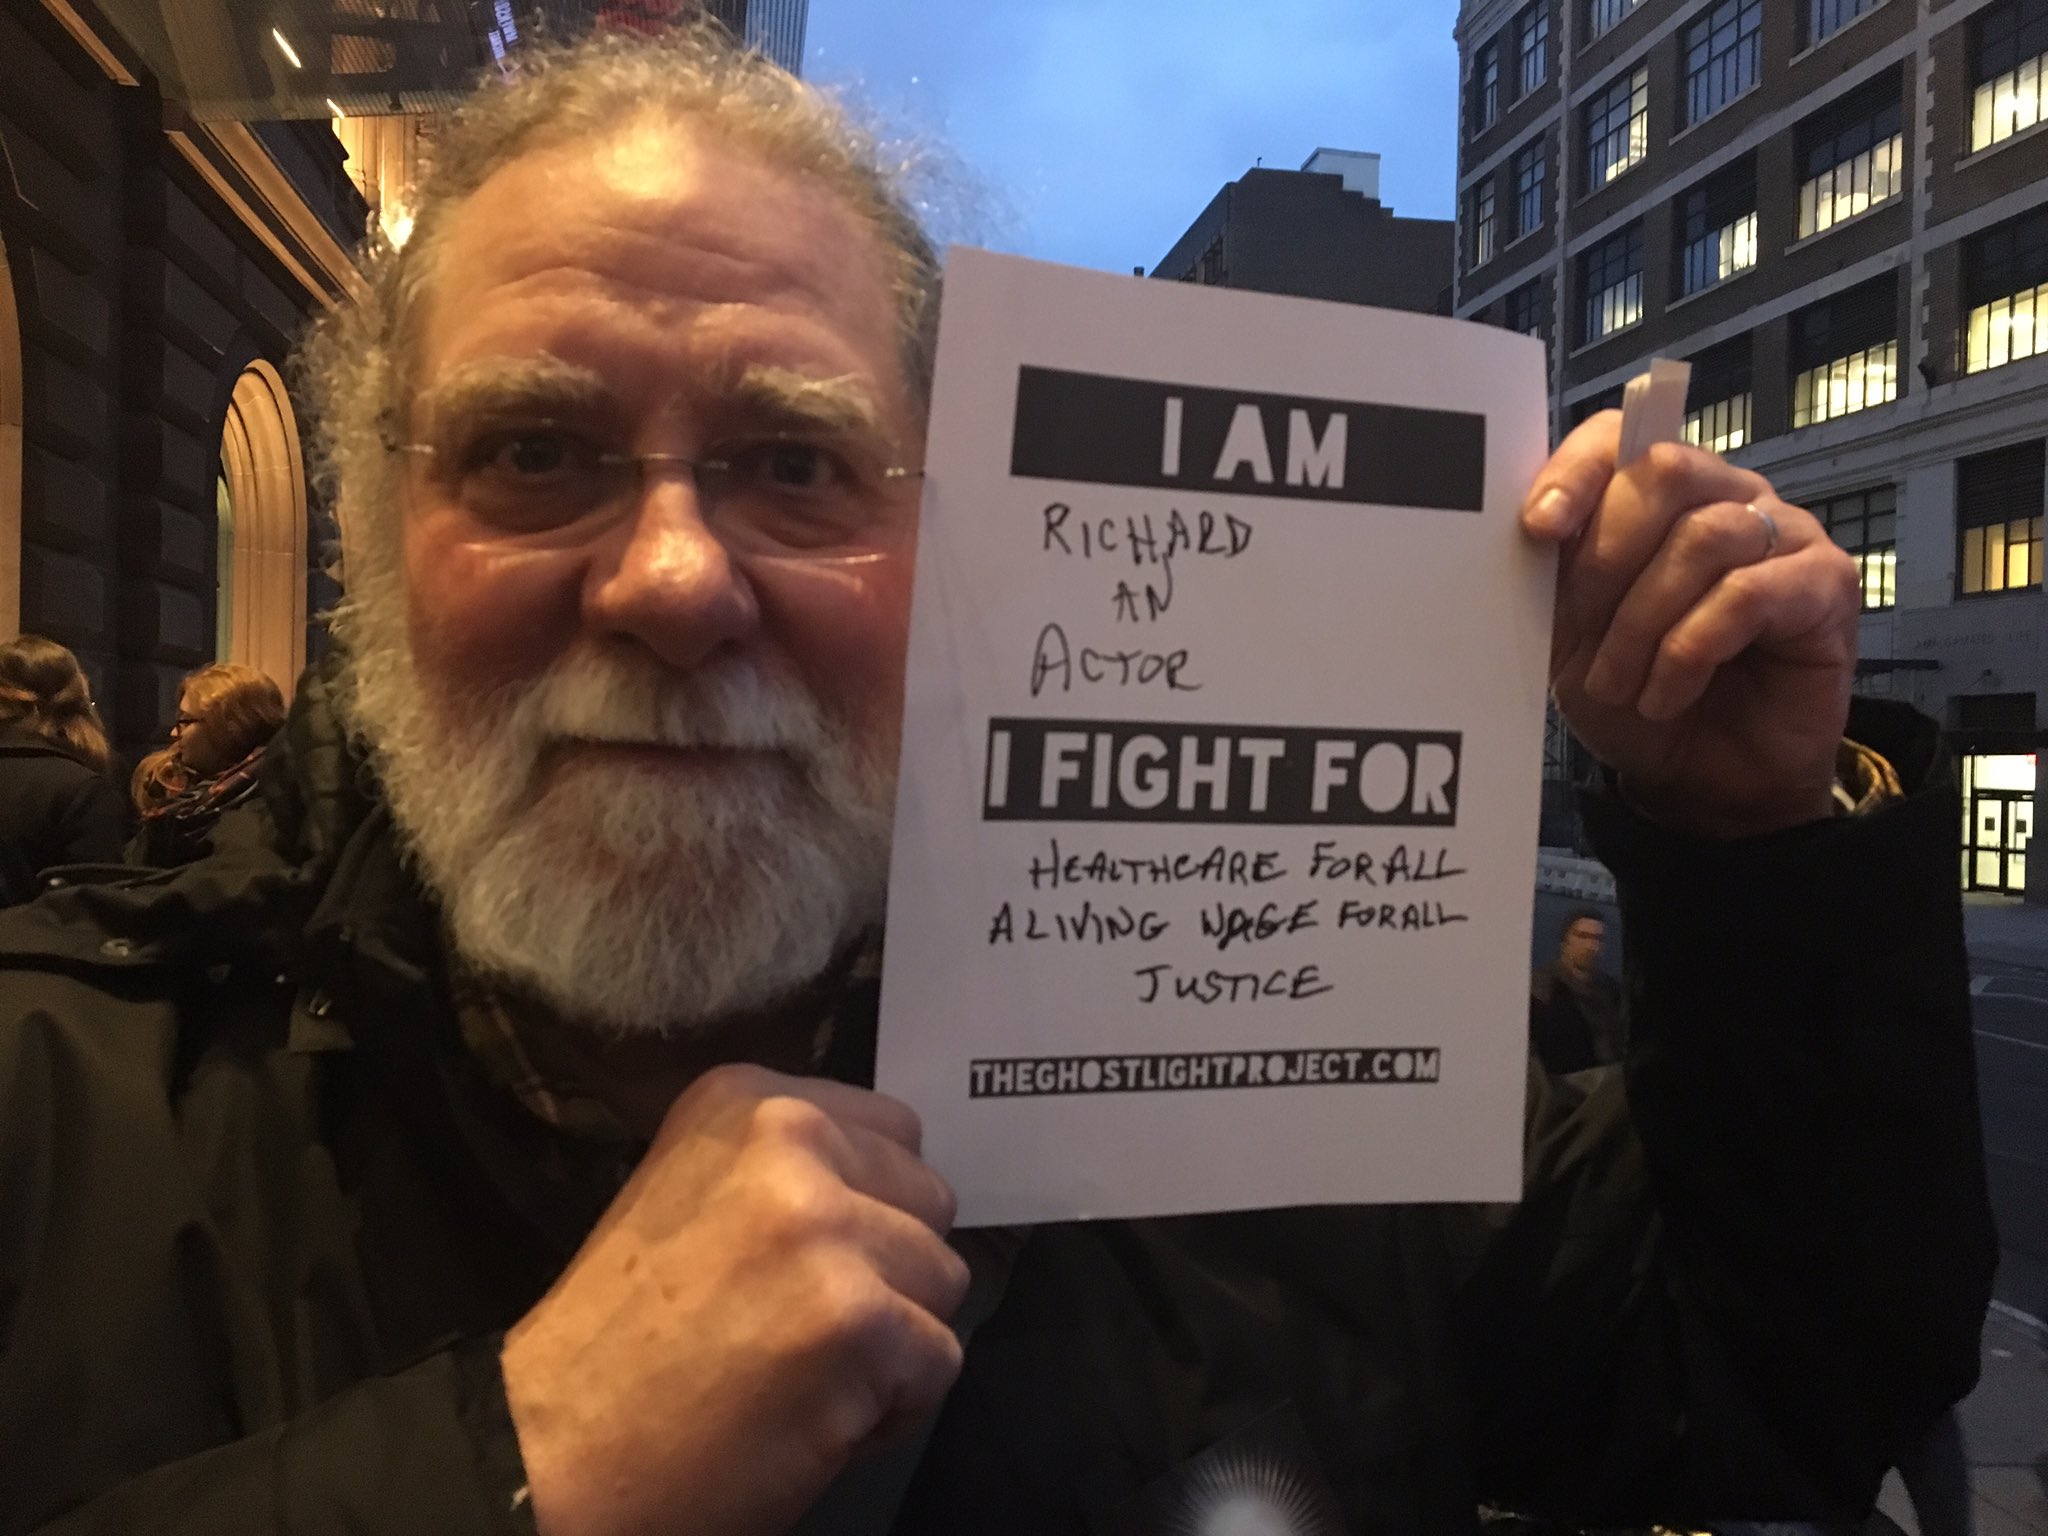 I AM
RICHARD
AN
ACTOR
I FIGHT FOR
HEALTHCARE FOR ALL
A LIVING WAGE FOR ALL
JUSTICE
THEGHOSTLIGHTPROJECT.COM